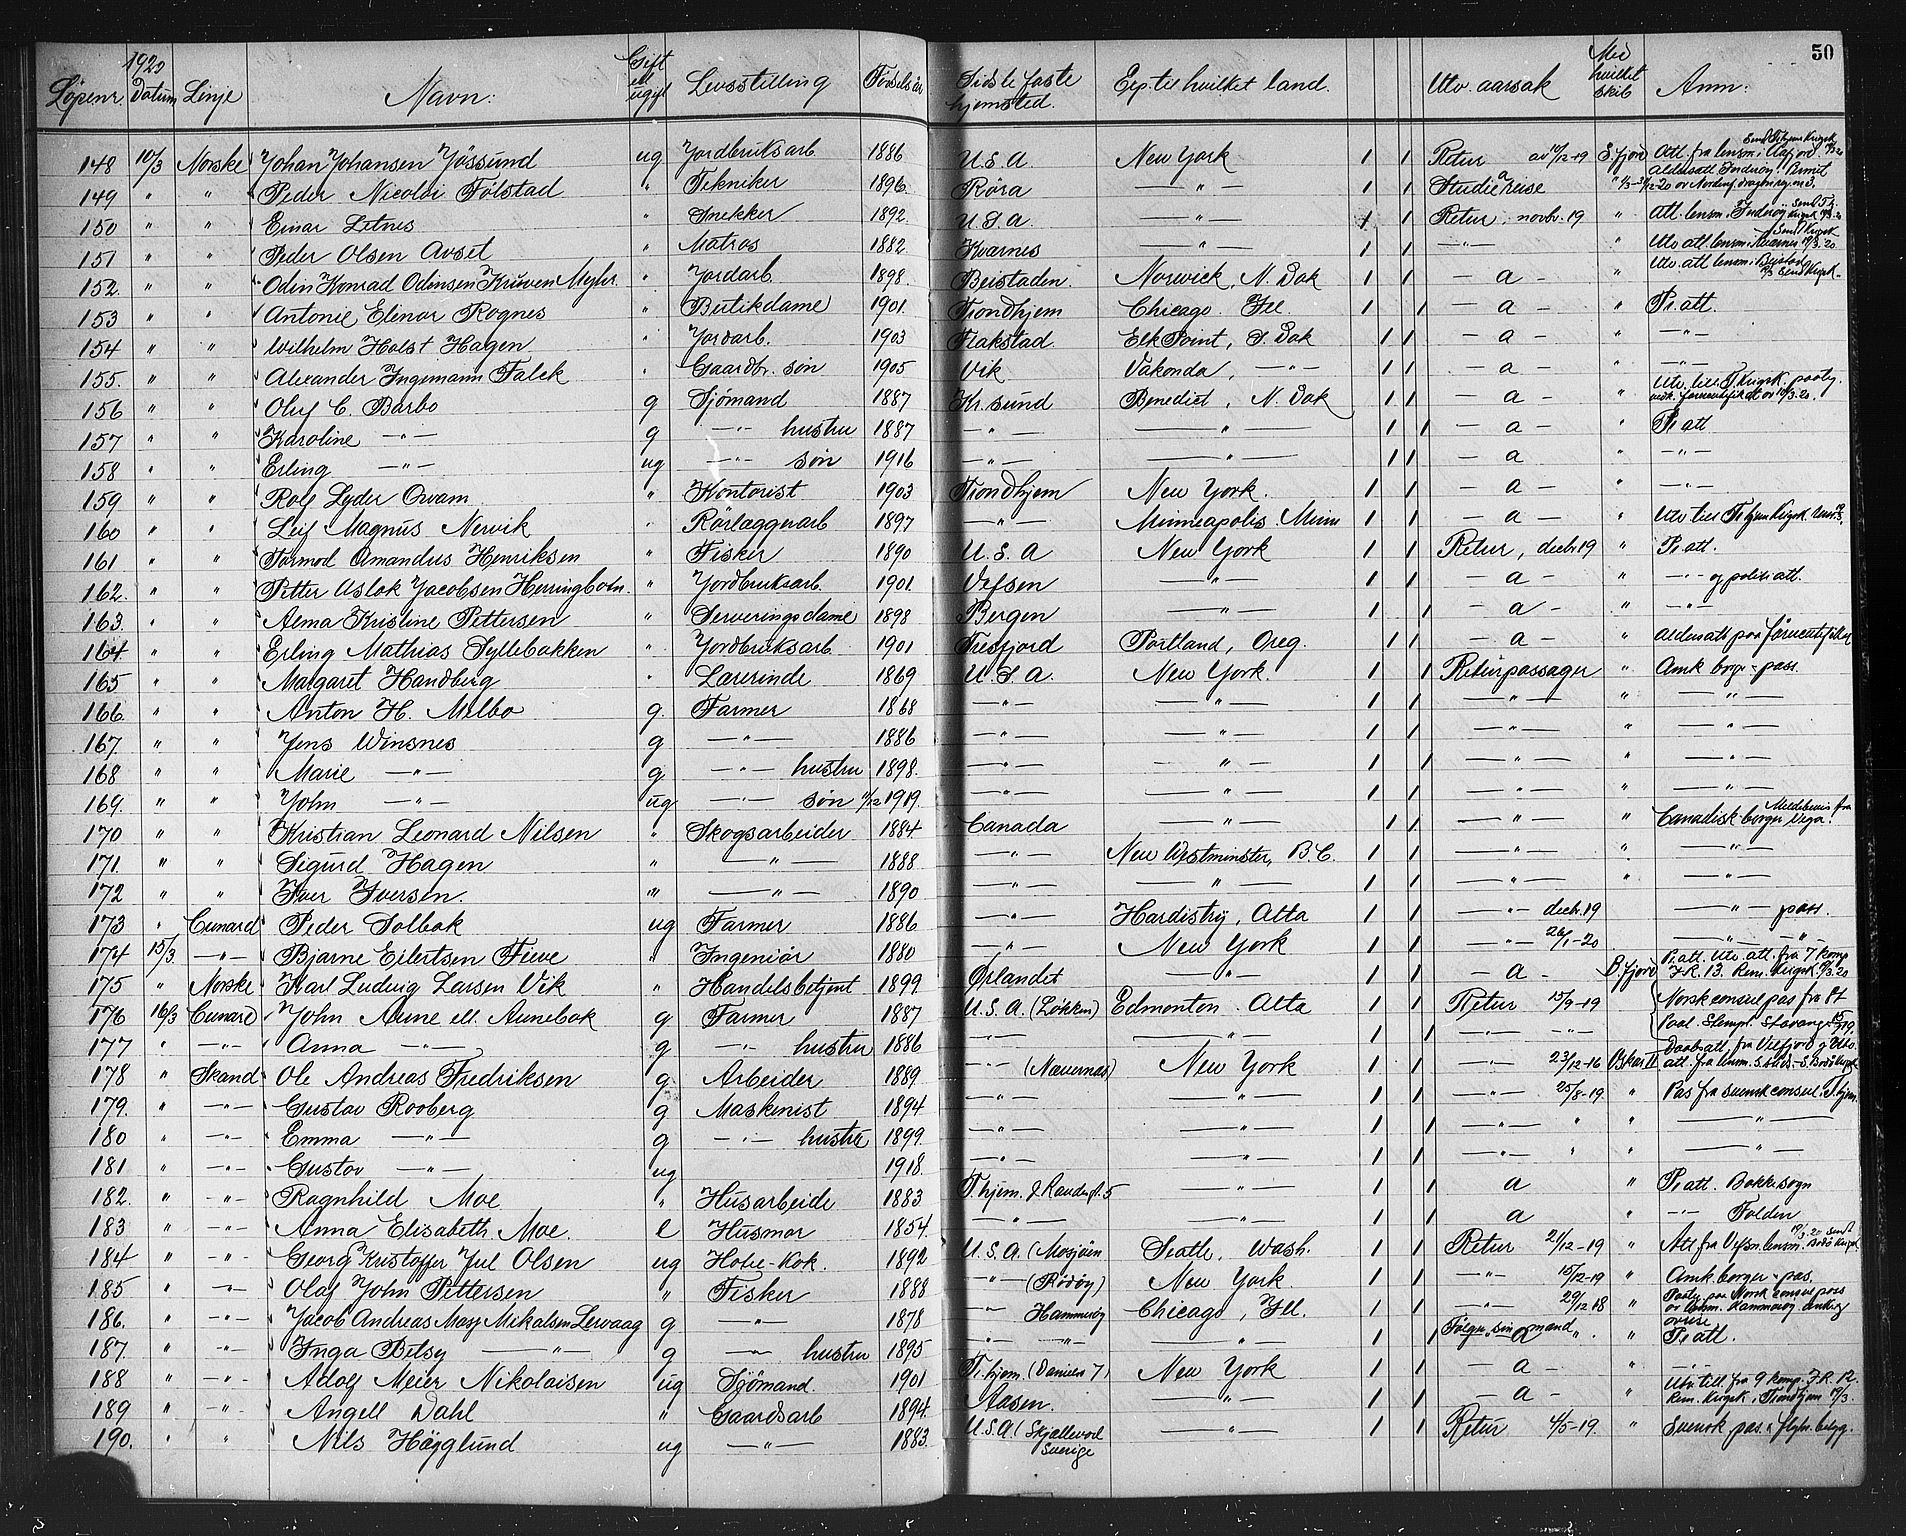 50
1920
Löpenr. Datum Linje Navn: Gift ell ugift Livsstilling Födselsår Sidste faste hjemsted. Exp. til hvilket land. Utv. aarsak Med hvilket skib Anm:
148 10/3 Norske Johan Johansen Jössund ug Jordbruksarb 1886 U.S.A. New York 1 1 Retur av 10/12-19 E. fjord Att. fra lensm. i Aafjord
149 " " Peder Nicolai Folstad " Tekniker 1896 Röra —"— 1 1 Studiereise "
150 " " Einar Letnes " Snekker 1892 U.S.A. —"— 1 1 Retur, novbr. 19 " Att. lensm. Inderöy
151 " " Peder Olsen Avset " Matros 1882 Kvarnes —"— 1 1 —"— " Utv. att. lensm. Kvarnes 10/3.20
152 " " Odin Konrad Odinsen " Jordarb. 1898 Beistaden Norwick, N. Dak 1 1 — a — " Utv. att lensm. i Beistad
153 " " Antonie Elenor Rognes " Butikdame 1901 Trondhjem Chicago. Ill. 1 1 — a — " Pr. att.
154 " " Wilhelm Holst Hagen " Jordarb. 1903 Flakstad Elk Point, S. Dak 1 1 — a — " —"—
155. " " Alexander Ingemann Falck " Gaardbr. søn 1905 Vik Vakonda, —"— 1 1 — a — " —"—
156 " " Oluf C. Barbo g Sjömand 1887 Kr. sund Benedict, N. Dak 1 1 — a — "
157 " " Karoline —"— g —"— hustru 1887 —"— —"— 1 1 — a — Pr. att
158 " " Erling —"— ug —"— søn 1916 —"— —"— 1 1 — a — " —"—
159 " " Rolf Lyder Qvam " Kontorist 1903 Trondhjem New York. 1 1 — a — " —"—
160 " " Leif Magnus Nervik " Rörlæggerarb 1897 —"— Minneapolis. Minn 1 1 — a — "
161 " " Tormod Amandus Henriksen " Fisker 1890 U.S.A New York 1 1 Retur, decbr 19 " Pr. att.
162. " " Petter Aslak Jacobsen Herringbotn. " Jordbruksarb. 1901. Vefsen —"— 1 1 — a — " —"— og politi att.
163. " " Alma Kristine Pettersen " Serveringsdame 1898 Bergen —"— 1 1 — a — " —"—
164 " " Erling Mathias Syllebakken " Jordbruksarb 1901 Tresfjord Portland, Oreg. 1 1 — a — "
165 " " Margaret Handberg " Lærerinde 1869 U.S.A. New York. 1 1 Returpassager " Amk borger - pass.
166. " " Anton H. Melbo g. Farmer 1868 —"— —"— 1 1 —"— " —"—
167. " " Jens Winsnes g —"— 1886 —"— —"— 1 1 —"— " —"—
168 " " Marie —"— g —"— hustru 1898. —"— —"— 1 1 —"— " —"—
169. " " John —"— ug —"— søn 11/12 1919. —"— —"— 1 1 —"— " —"—
170 " " Kristian Leonard Nilsen " Skogsarbeider 1884 Canada —"— 1 1 —"— " Canadisk borger Meldebevis fra Vega.
171. " " Sigurd Hagen " —"— 1888 —"— New Westminster, B.C. 1 1 —"— " —"—
172 " " Iver Iversen. " —"— 1890 —"— —"— 1 1 —"— " —"—
173 " Cunard Peder Solbak ug Farmer 1886 —"— Hardisty, Alta 1 1 —"— decbr. 19 —"— pass.
174 15/3. —"— Bjarne Eilertsen " Ingeniör 1880 —"— New York 1 1 —"— 26/1-20 —"— "
175 " Norske Karl Ludvig Larsen Vik " Handelsbetjent 1899 Ørlandet —"— 1 1 — a — B. fjord Pr. att. Utv. att. fra 7 komp I.R. 13. Rem. Krigsk.
176 16/3 Cunard John Aune ell. Aunebak g Farmer 1887 U.S.A. (Løkken) Edmonton. Alta 1 1 Retur 15/9-19 Norsk consul pas fra St Paal. Stempl. Stavanger
177 " —"— Anna —"— g —"— hustru 1886 —"— —"— 1 1 —"— —"—
178 " Skand Ole Andreas Fredriksen g. Arbeider 1889 —"— (Nævernes) New York 1 1 —"— 23/12-16 Oskar II Daabsatt. fra Velfjord og Utv. att. fra lensm.
179. " —"— Gustav Rooberg g Maskinist 1894 —"— —"— 1 1 —"— 25/8-19 " Pas fra svensk consul. T. hjem.
180 " —"— Emma —"— g —"— hustru 1899. —"— —"— 1 1 —"— " " —"—
181 " —"— Gustav —"— ug 1918. —"— —"— 1 1 —"— " " —"—
182. " —"— Ragnhild Moe " Husarbeide 1883 T. hjem. —"— 1 1 a " Pr. att. Bakkesogn
183 " —"— Anna Elisabeth Moe. e Husmor 1854. —"— —"— 1 1 a —"— Folden
184 " —"— Georg Kristoffer Jul Olsen ug Hotel-Kok. 1892 U.S.A. (Mosjöen Seatle. Wash. 1 1 Retur 21/12-19 " Att fra Vefsn. lensm.
185 " —"— Olaf John Pettersen " Fisker 1888 —"— (Rödöy) New York. 1 1 —"— 15/12-19 " Amk. borger - pas.
186. " —"— Jacob Andreas Mikalsen Lervaag g —"— 1878 —"— Hammeröy Chicago, Ill. 1 1 —"— 29/12 18 "
187. " —"— Inga Betsy —"— g —"— hustru 1895 —"— —"— —"— 1 1 Følger sin mand " Pr. att.
188 " —"— Adolf Meier Nikolaisen ug Sjömand. 1901 Tr. hjem. New York 1 1 — a — " —"—
189 " —"— Angell Dahl " Gaardsarb 1894 Aasen. —"— 1 1 — a — " Utv. till fra 9 komp. I.R. 12. Rem. Krigsk. Trondhjem
190. " " Nils Hägglund ug —"— 1883. U.S.A. ( Sverige —"— 1 1 Retur 4/5-19. " Svensk pas.